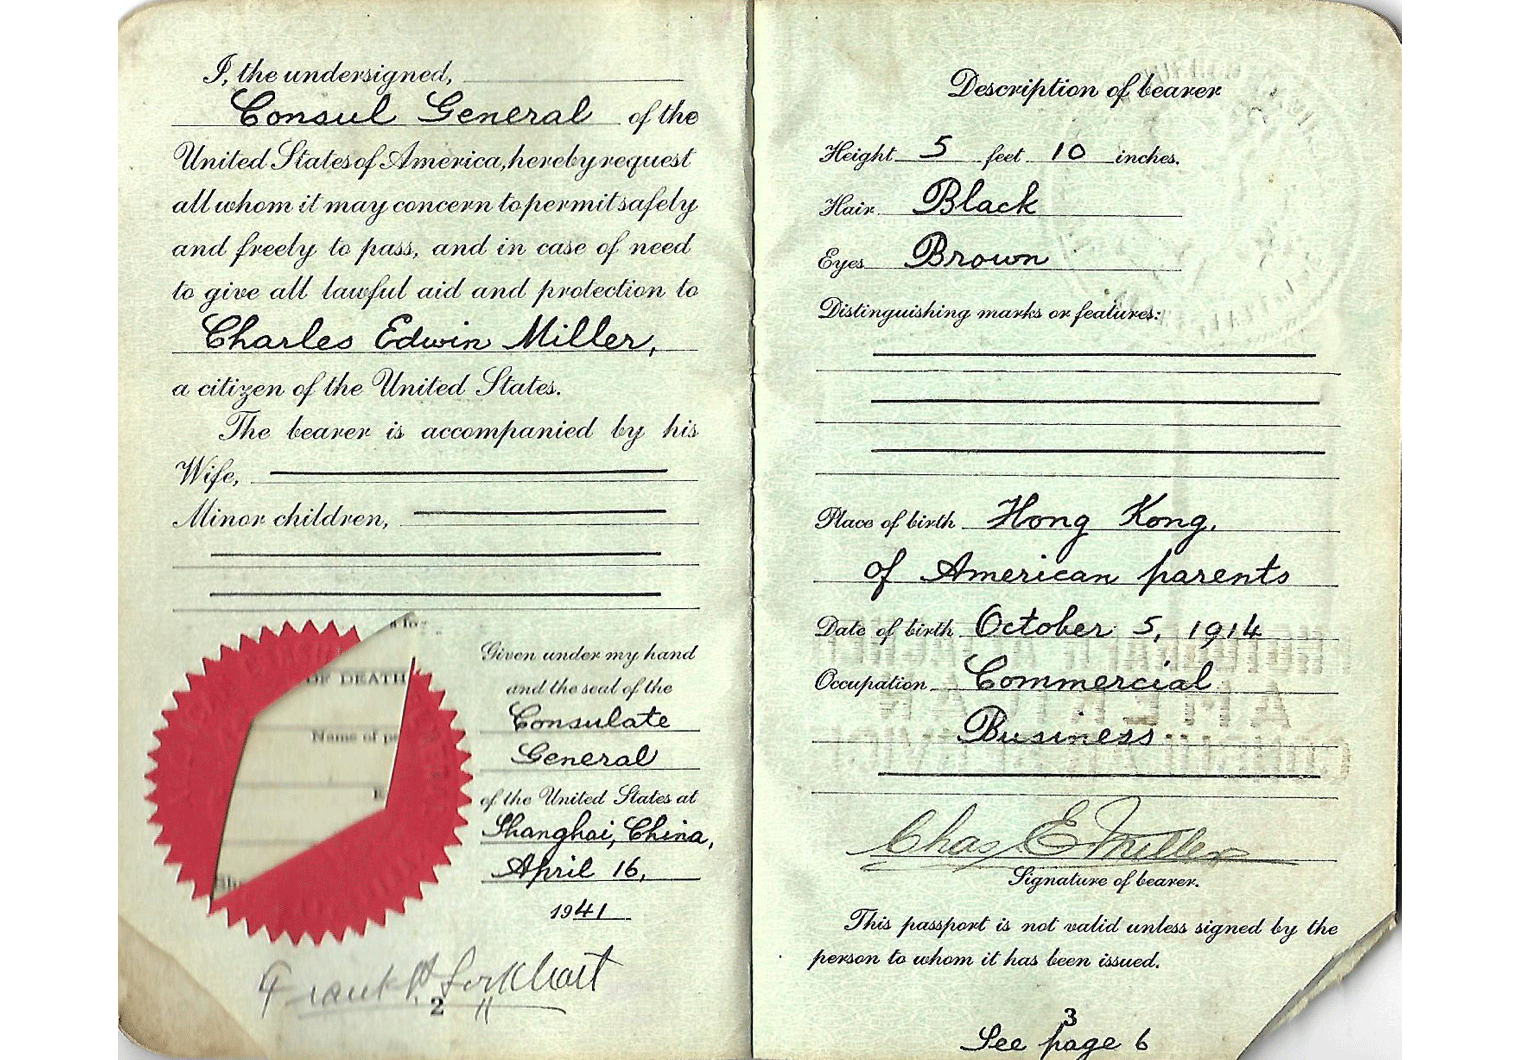 I, the undersigned,
Consul General of the
United States of America, hereby request
all whom it may concern to permit safely
and freely to pass, and in case of need
to give all lawful aid and protection to
Charles Edwin Miller,
a citizen of the United States.
The bearer is accompanied by his
Wife,
Minor children,
OF DEATH
Name of
Given under my hand
and the seal of the
Consulate
General
of the United States at
Shanghai, China,
April 16,
1941
Frank P Lockhart
2
Description of bearer
Height 5 feet 10 inches.
Hair Black
Eyes Brown
Distinguishing marks or features:
Place of birth Hong Kong,
of American parents
Date of birth October 5, 1914
Occupation Commercial
Business
Chas E Miller
Signature of bearer.
This passport is not valid unless signed by the
person to whom it has been issued.
3
See page 6